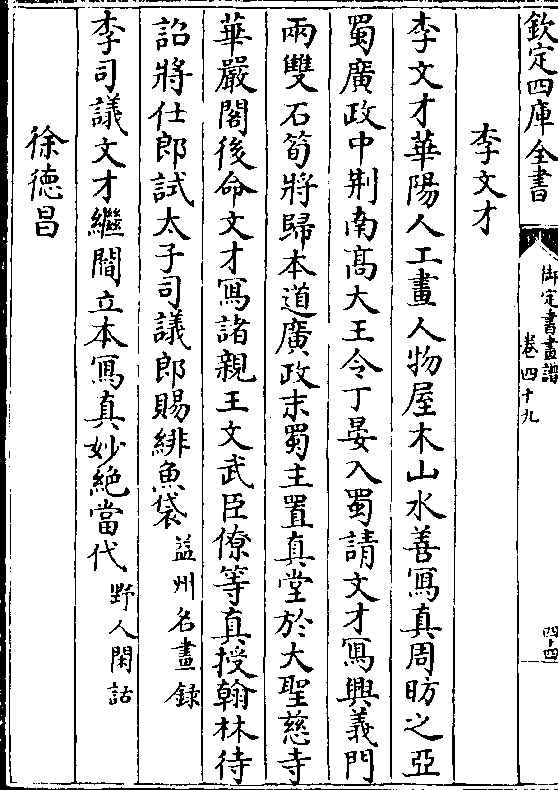 欽定四庫全書
御定書畫譜
卷四十九
四十四
李文才
李文才華陽人工畫人物屋木山水善寫真周昉之亞
蜀廣政中荆南髙大王令丁晏入蜀請文才寫興義門
兩雙石筍將歸本道廣政末蜀主置真堂於大聖慈寺
華嚴閣後命文才寫諸親王文武臣僚等真授翰林待
詔將仕郎試太子司議郎賜緋魚袋益州名畫錄
李司議文才繼閻立本寫真妙絶當代野人閑話
徐德昌